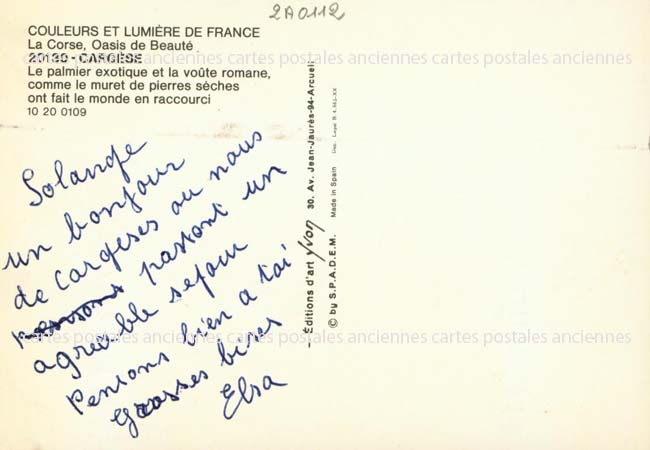 2A0112
COULEURS ET LUMIÈRE DE FRANCE
La Corse, Oasis de Beauté
20130 - CARGÈSE
Le palmier exotique et la voûte romane,
comme le muret de pierres sèches
ont fait le monde en raccourci
10 20 0109
Solange
un bonjour
de Cargeses ou nous
passont un
agreable sejour
Pensons bien a toi
Grosses bises
Elsa
Éditions d'art Yvon 30, Av. Jean-Jaurès-94-Arcueil
© by S.P.A.D.E.M. Made in Spain
anciennes cartes postales anciennes cartes postales anciennes cartes postales anciennes
anciennes cartes postales anciennes cartes postales anciennes cartes postales anciennes